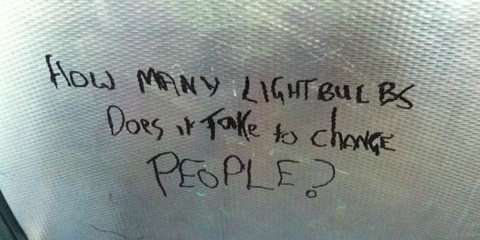 HOW MANY LIGHTBULBS
DOES it TAKE to CHANGE
PEOPLE?